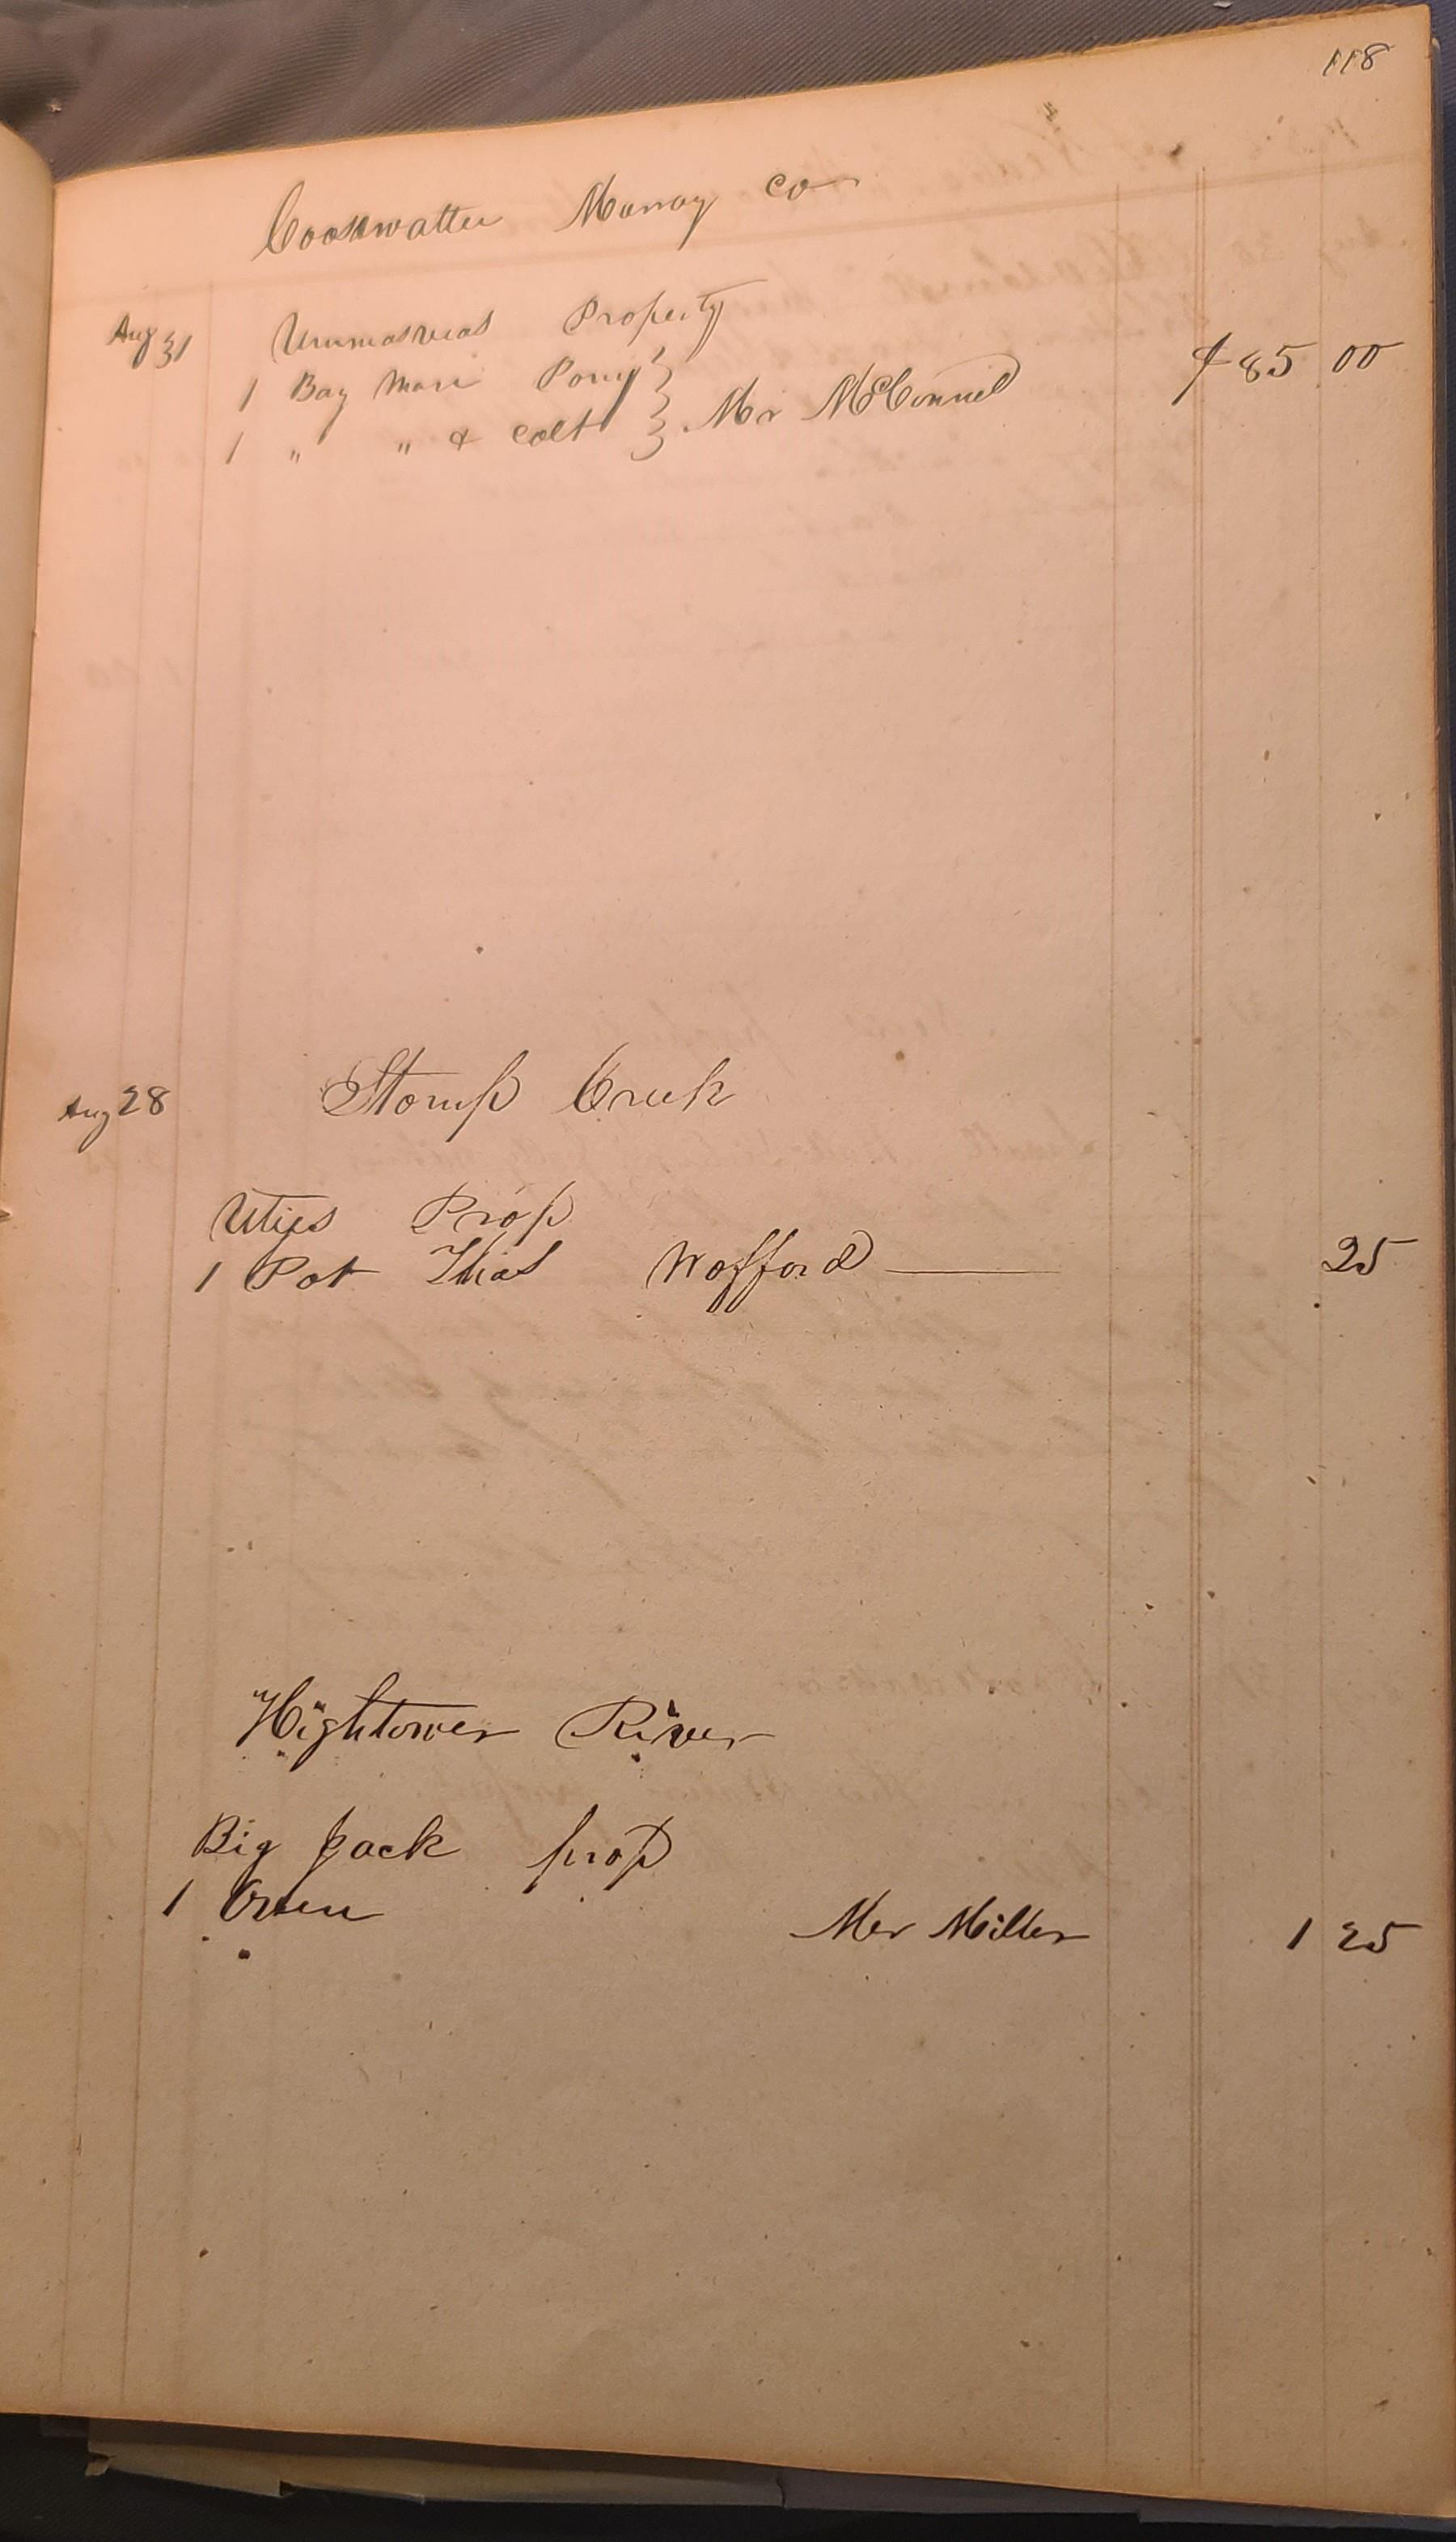 118
Coosawattee Murray Co
Aug 31 Property
1 Bay Mare Pony }
1 " " & Colt } Mr McConnel $85 00
Aug 28 Stomp Creek
Uties Prop
1 Pot Thos Wofford 25
Hightower River
Big Jack prop
1 Oven Mr Miller 1 25